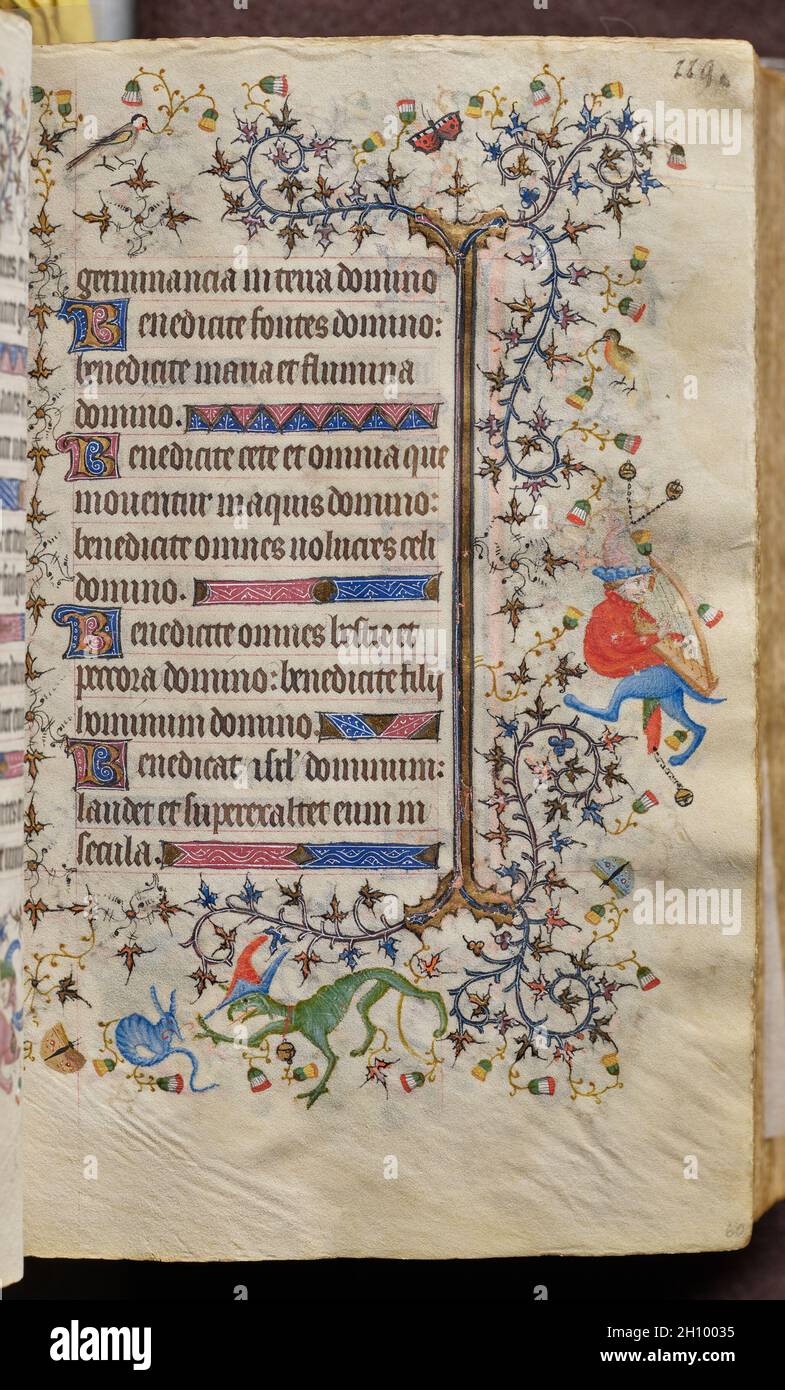 germinancia in terra domino
Benedicite fontes domino:
benedicite maria et flumina
domino.
Benedicite cete et omnia que
mouentur in aquis domino:
benedicite omnes uolucres celi
domino.
Benedicite omnes bestie et
pecora domino: benedicite filij
hominum domino.
Benedicat isrl' dominum:
laudet et superexaltet eum in
secula.
alamy
Image ID: 2H10035
www.alamy.com